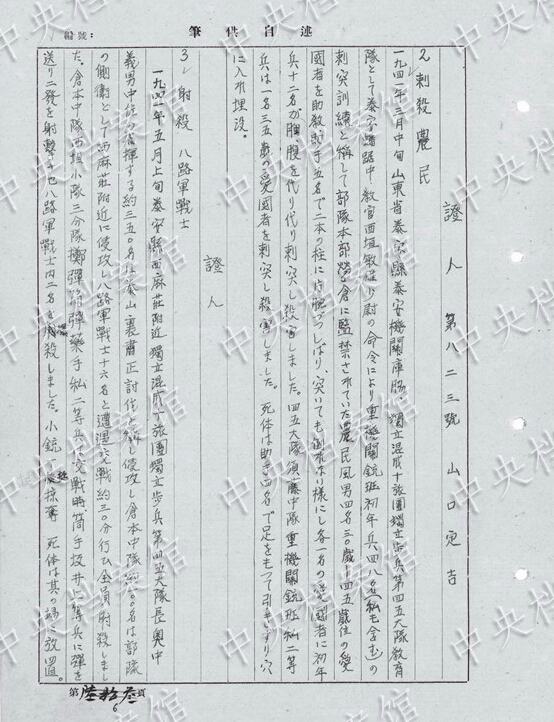 編號：
筆供自述
證人　第八二三號　山口定吉
2、刺殺農民
一九四一年三月中旬山東省泰安縣泰安機関庫脇、獨立混成十旅團獨立歩兵第四五大隊教育
隊として泰安 中教官西垣敏 少尉の命令により重機関銃班初年兵四八名（私も含む）の
刺突訓練と稱して部隊本部營倉に監禁されていた農民風男四名三〇歳－四五歳位の愛
國者を助教助手五名で二本の柱に しばり、突いても倒れない様にし各一名の愛國者に初年
兵十二名が胸、腹を代り代り刺突し殺害しました。四五大隊須藤中隊重機関銃班私二等
兵は一名三五歳の愛國者を刺突し殺害しました。死体は助 四名で足をもって引きずり穴
に入れ埋没。
證人
3、射殺　八路軍戰士
一九四一年五月上旬泰安縣西麻莊附近獨立混成十旅團獨立歩兵第四五大隊長奥中
義男中佐の指揮する約三五〇名は泰山裏肅正討伐と稱し侵攻し倉本中隊約六〇名は部隊
の側衛として西麻莊附近に侵攻し八路軍戰士十六名と遭遇交戰約三〇分行ひ全員射殺しまし
た。倉本中隊西垣小隊三分隊擲彈筒彈藥手私二等兵は交戰時筒手坂井上等兵に彈を
送り二發を射撃し 八路軍戰士内二名を 殺しました。小銃 掠奪 死体は其の場に放置。
第陸拾叁頁
6
中央档案馆